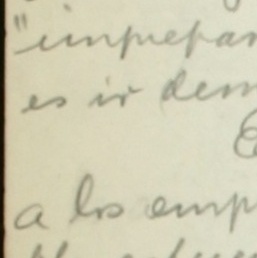 "imprepar
es ir dem
a los emp